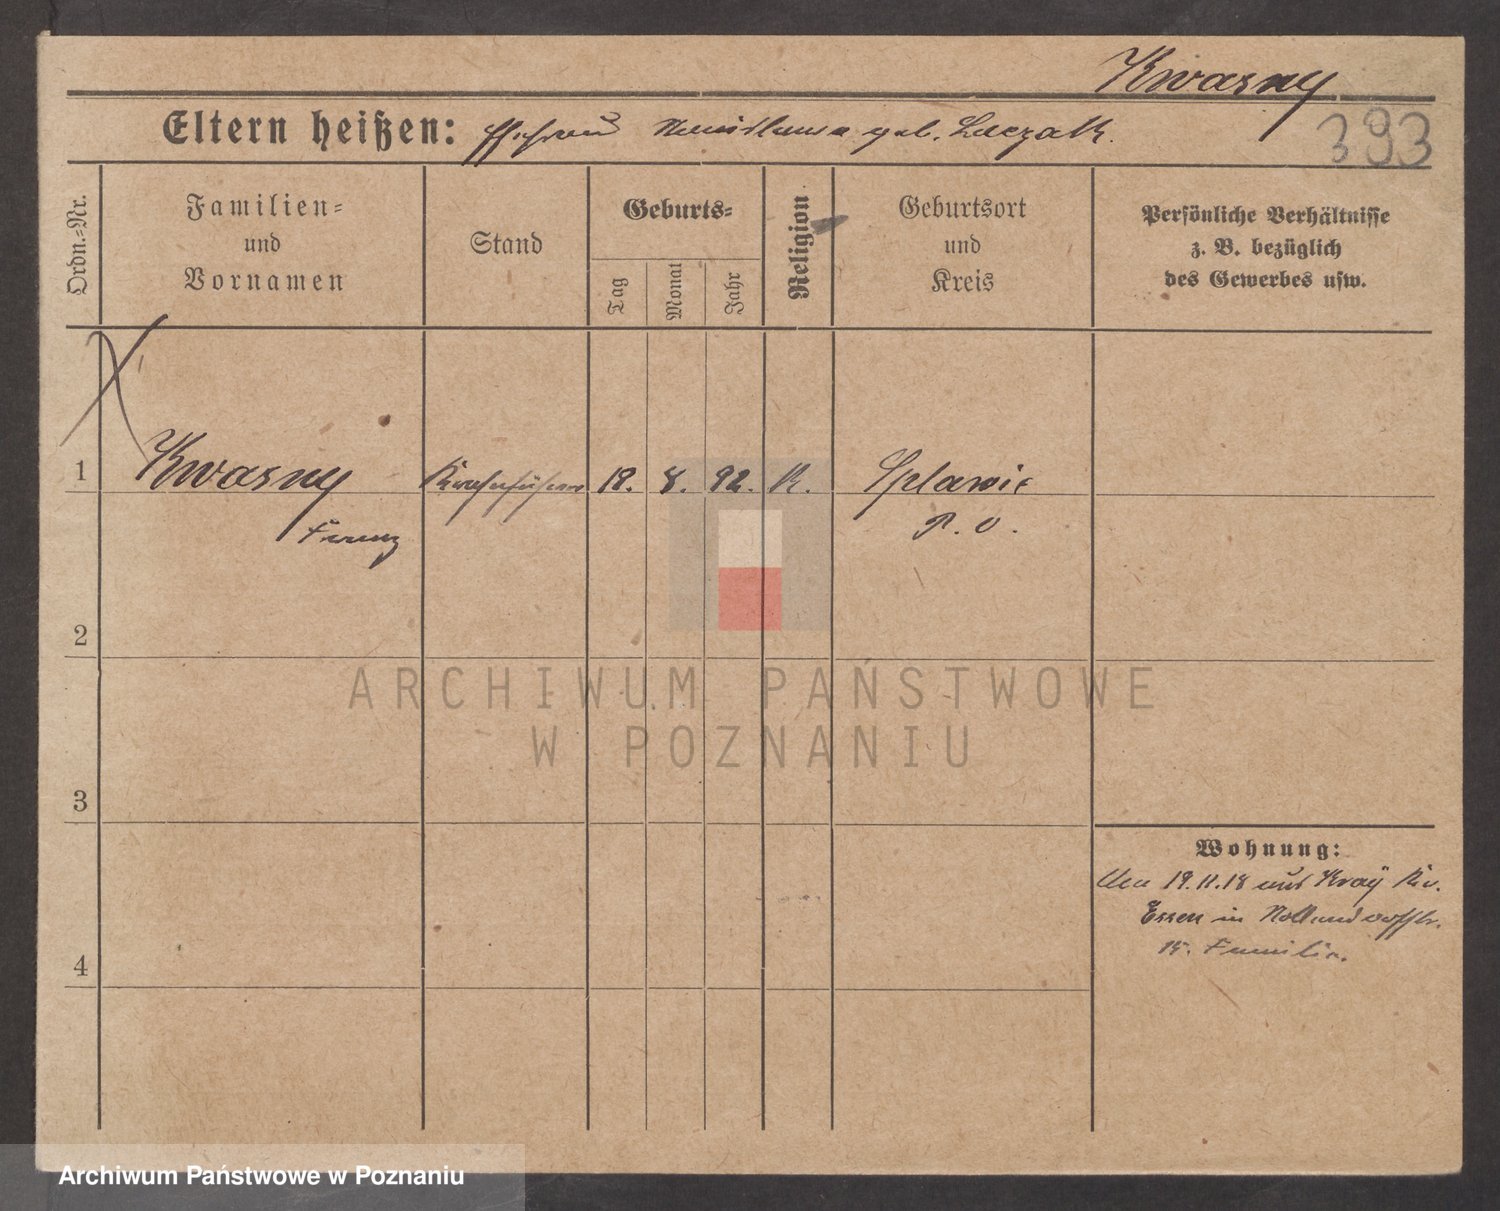 Kwasny
393
Eltern heißen: geb.
Ordn.=Nr.
Familien=
und
Vornamen
Stand
Geburts=
Tag
Monat
Jahr
Religion
Geburtsort
und
Kreis
Persönliche Verhältnisse
z. B. bezüglich
des Gewerbes usw.
1
Kwasny
Franz
18. 8. 92. K.
Splawie
P. O.
2
3
4
Wohnung:
19.11.18 aus Kray
Essen in Nollendorfstr.
15. Familie.
ARCHIWUM PAŃSTWOWE
W POZNANIU
Archiwum Państwowe w Poznaniu